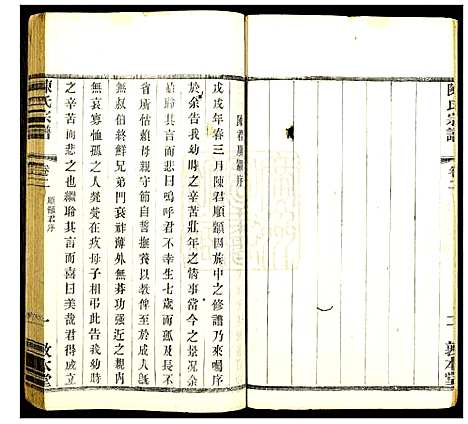 陳氏宗譜
卷二
二
敦本堂
陳君順顯序
戊戌年春三月陳君順顯因族中之修譜乃來囑序
於余告我幼時之辛苦壯年之情事當今之景況余
始聆其言而悲曰嗚呼君不幸生七歲而孤及長不
省所怙賴母親守節自誓撫養以教俾至於成人既
無叔伯終鮮兄弟門衰祚薄外無朞功強近之親內
無哀寡恤孤之人煢煢在疚母子相弔此告我幼時
之辛苦而悲之也繼聆其言而喜曰美哉君得成立
陳氏宗譜
卷二
順顯君序
一
敦本堂